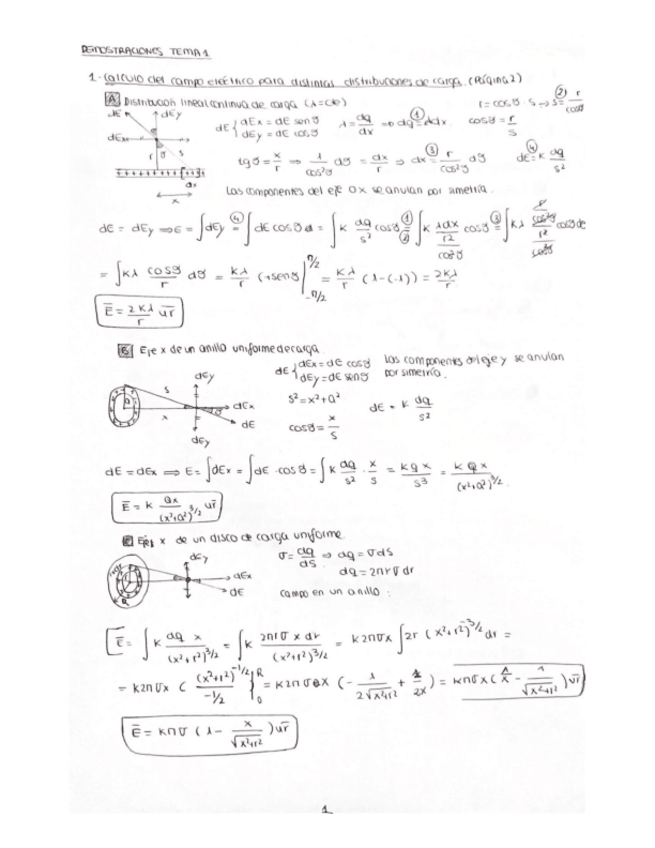 DEMOSTRACIONES TEMA 1
1- Calculo del campo electrico para distintas distribuciones de carga. (Página 2)
A Distribución lineal continua de carga (λ=cte)
dE { dEx = dE sen θ
dEy = dE cos θ
λ = dq/dx => dq = λdx ①
cos θ = r/s
r = cos θ s → s = r/cos θ ②
tg θ = x/r => 1/cos²θ dθ = dx/r => dx = r/cos²θ dθ ③
dE = K dq/s² ④
Las componentes del eje OX se anulan por simetría.
dE = dEy => E = ∫dEy = ∫dE cos θ = ∫K dq/s² cos θ = ∫K λdx/(r²/cos²θ) cos θ = ∫Kλ
= ∫Kλ cos θ/r dθ = Kλ/r (sen θ) |π/2 -π/2 = Kλ/r (1-(-1)) = 2Kλ/r
E = 2Kλ/r ur
B Eje x de un anillo uniforme de carga.
dE { dEx = dE cos θ
dEy = dE sen θ
Las componentes del eje y se anulan
por simetría.
s² = x²+a²
cos θ = x/s
dE = K dq/s²
dE = dEx => E = ∫dEx = ∫dE · cos θ = ∫K dq/s² · x/s = KQx/s³ = KQx/(x²+a²)^3/2
E = K Qx/(x²+a²)^3/2 ur
C Eje x de un disco de carga uniforme
σ = dq/dS => dq = σdS
dq = 2πrσdr
campo en un anillo:
E = ∫K dq x/(x²+r²)^3/2 = ∫K 2πrσ x dr/(x²+r²)^3/2 = K2πσx ∫2r (x²+r²)^-3/2 dr =
= K2πσx ( (x²+r²)^-1/2/-1/2 |R 0 = K2πσx (- 1/2√x²+r² + 1/2x) = Kπσx (1/x - 1/√x²+r²) ur
E = Kπσ (1- x/√x²+r²) ur
1